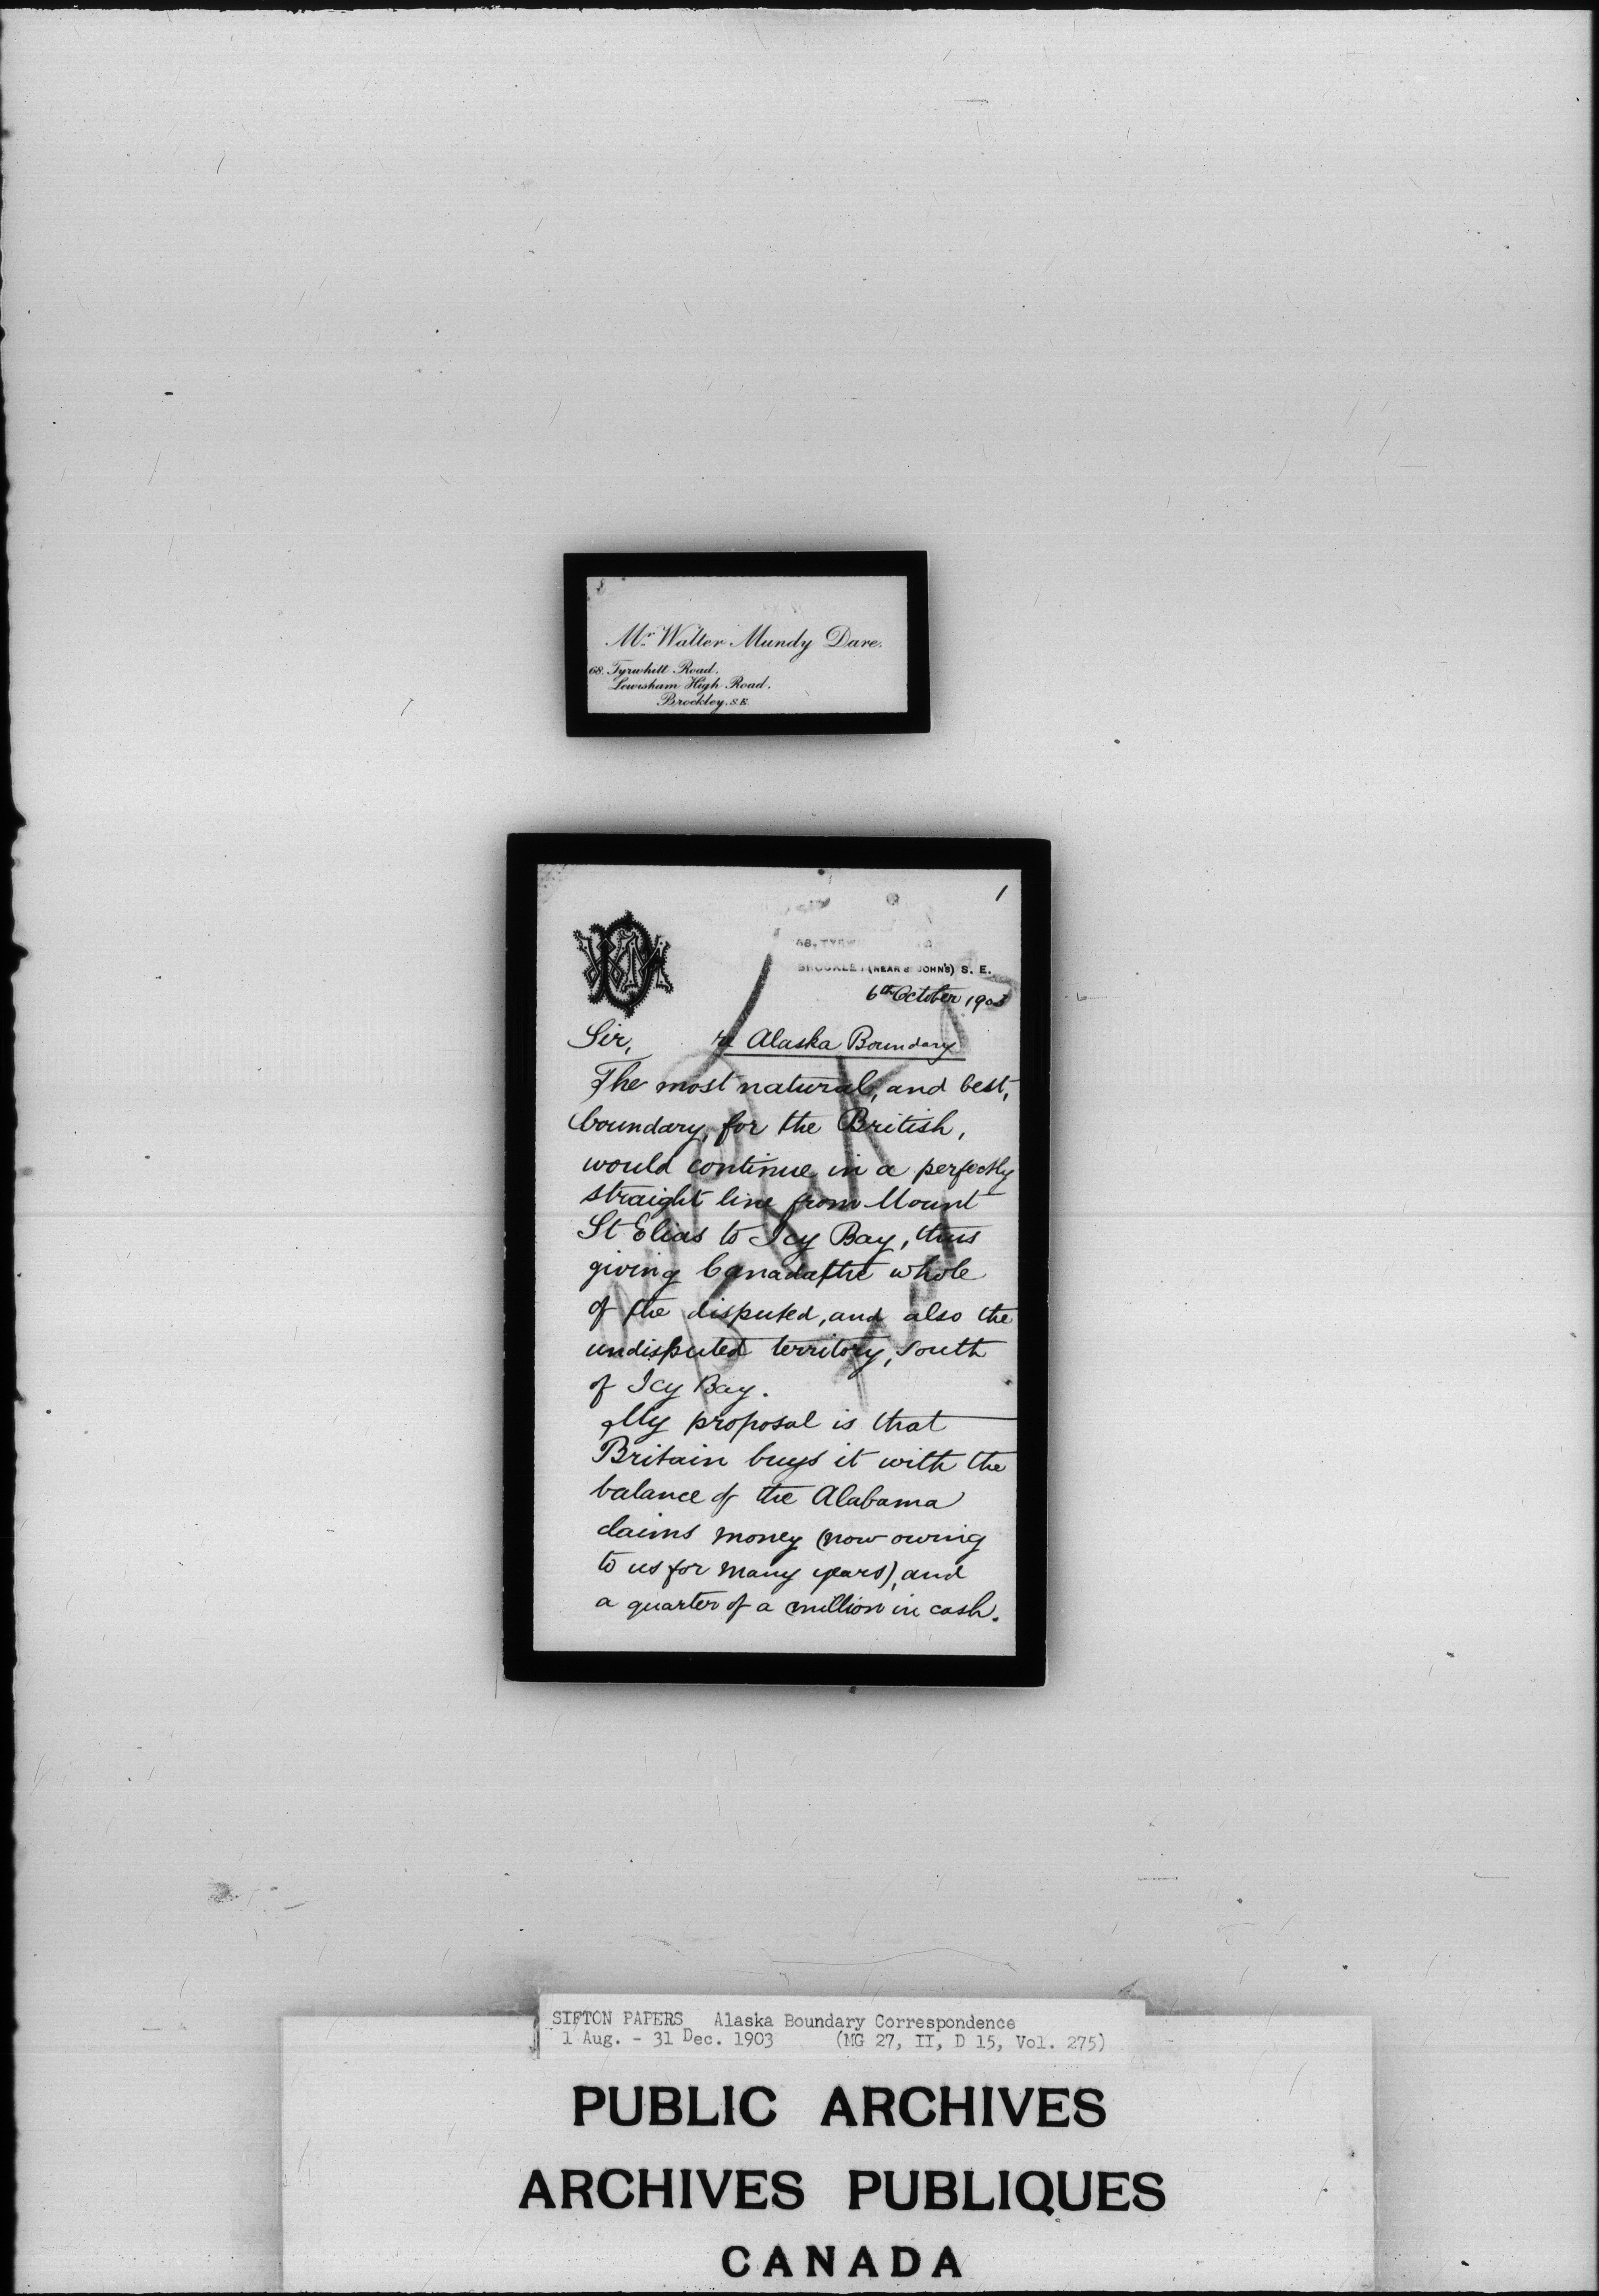 Mr. Walter Mundy Dare.
68. Tyrwhitt Road.
Lewisham High Road.
Brockley. S.E.
1
68, TYRW
BROCKLEY (NEAR St JOHN'S) S. E.
6th October 1903
Sir,
re Alaska Boundary
The most natural, and best,
boundary, for the British,
would continue in a perfectly
straight line from Mount
St Elias to Icy Bay, thus
giving Canada the whole
of the disputed, and also the
undisputed territory, south
of Icy Bay.
My proposal is that
Britain buys it with the
balance of the Alabama
claims money (now owing
to us for many years), and
a quarter of a million in cash.
SIFTON PAPERS Alaska Boundary Correspondence
1 Aug. - 31 Dec. 1903 (MG 27, II, D 15, Vol. 275)
PUBLIC ARCHIVES
ARCHIVES PUBLIQUES
CANADA